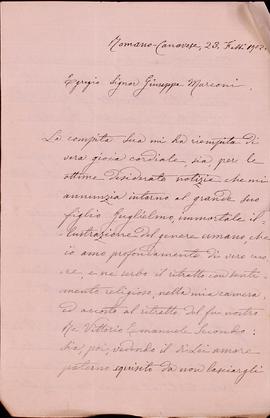 Romano-Canavese, 23. Febb. 1902.
Egregio Signor Giuseppe Marconi.
La compita Sua mi ha riempita di
vera gioia cordiale, sia per le
ottime desiderate notizie che mi
annunzia intorno al grande suo
figlio Guglielmo, immortale il-
lustrazione del genere umano, che
io amo profondamente di vero cuo-
re, e ne serbo il ritratto con senti-
mento religioso, nella mia camera,
ed accosto al ritratto del fu nostro
Re Vittorio Emanuele Secondo:
sia, poi, vedendo il di Lei amore
paterno squisito da non lasciargli